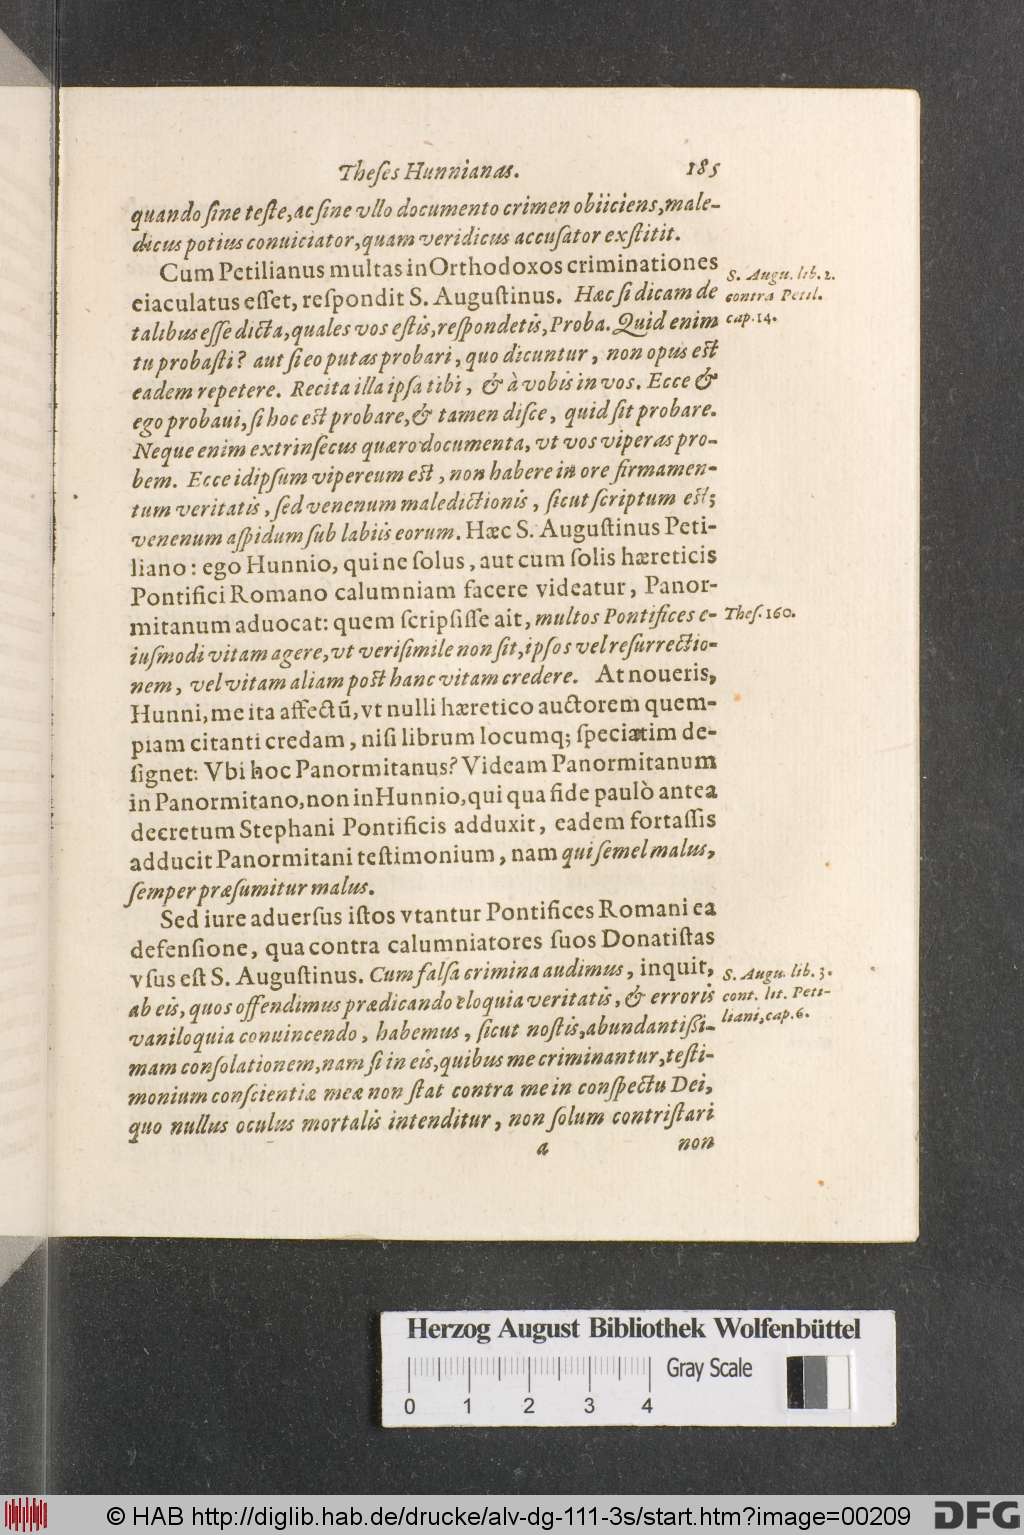 Theſes Hunnianas. 185
quando ſine teſte, ac ſine vllo documento crimen obiiciens, male-
dicus potius conuiciator, quam veridicus accuſator exſtitit.
Cum Petilianus multas in Orthodoxos criminationes
eiaculatus eſſet, reſpondit S. Auguſtinus. Hæc ſi dicam de
talibus eſſe dicta, quales vos eſtis, reſpondetis, Proba. Quid enim
tu probaſti? aut ſi eo putas probari, quo dicuntur, non opus eſt
eadem repetere. Recita illa ipſa tibi, & à vobis in vos. Ecce &
ego probaui, ſi hoc eſt probare, & tamen diſce, quid ſit probare.
Neque enim extrinſecus quæro documenta, vt vos viperas pro-
bem. Ecce id ipſum vipereum eſt, non habere in ore firmamen-
tum veritatis, ſed venenum maledictionis, ſicut ſcriptum eſt;
venenum aſpidum ſub labiis eorum. Hæc S. Auguſtinus Peti-
liano: ego Hunnio, qui ne ſolus, aut cum ſolis hæreticis
Pontifici Romano calumniam facere videatur, Panor-
mitanum aduocat: quem ſcripſiſſe ait, multos Pontifices e-
iuſmodi vitam agere, vt veriſimile non ſit, ipſos vel reſurrectio-
nem, vel vitam aliam poſt hanc vitam credere. At noueris,
Hunni, me ita affectũ, vt nulli hæretico auctorem quem-
piam citanti credam, niſi librum locumq; ſpeciatim de-
ſignet: Vbi hoc Panormitanus? Videam Panormitanum
in Panormitano, non in Hunnio, qui qua fide paulò antea
decretum Stephani Pontificis adduxit, eadem fortaſſis
adducit Panormitani teſtimonium, nam qui ſemel malus,
ſemper præſumitur malus.
Sed iure aduerſus iſtos vtantur Pontifices Romani ea
defenſione, qua contra calumniatores ſuos Donatiſtas
vſus eſt S. Auguſtinus. Cum falſa crimina audimus, inquit,
ab eis, quos offendimus prædicando eloquia veritatis, & erroris
vaniloquia conuincendo, habemus, ſicut noſtis, abundantiſſi-
mam conſolationem, nam ſi in eis, quibus me criminantur, teſti-
monium conſcientiæ meæ non ſtat contra me in conſpectu Dei,
quo nullus oculus mortalis intenditur, non ſolum contriſtari
a non
S. Augu. lib. 2.
contra Petil.
cap. 14.
Theſ. 160.
S. Augu. lib. 3.
cont. lit. Peti-
liani, cap. 6.
Herzog August Bibliothek Wolfenbüttel
Gray Scale
0 1 2 3 4
© HAB http://diglib.hab.de/drucke/alv-dg-111-3s/start.htm?image=00209
DFG